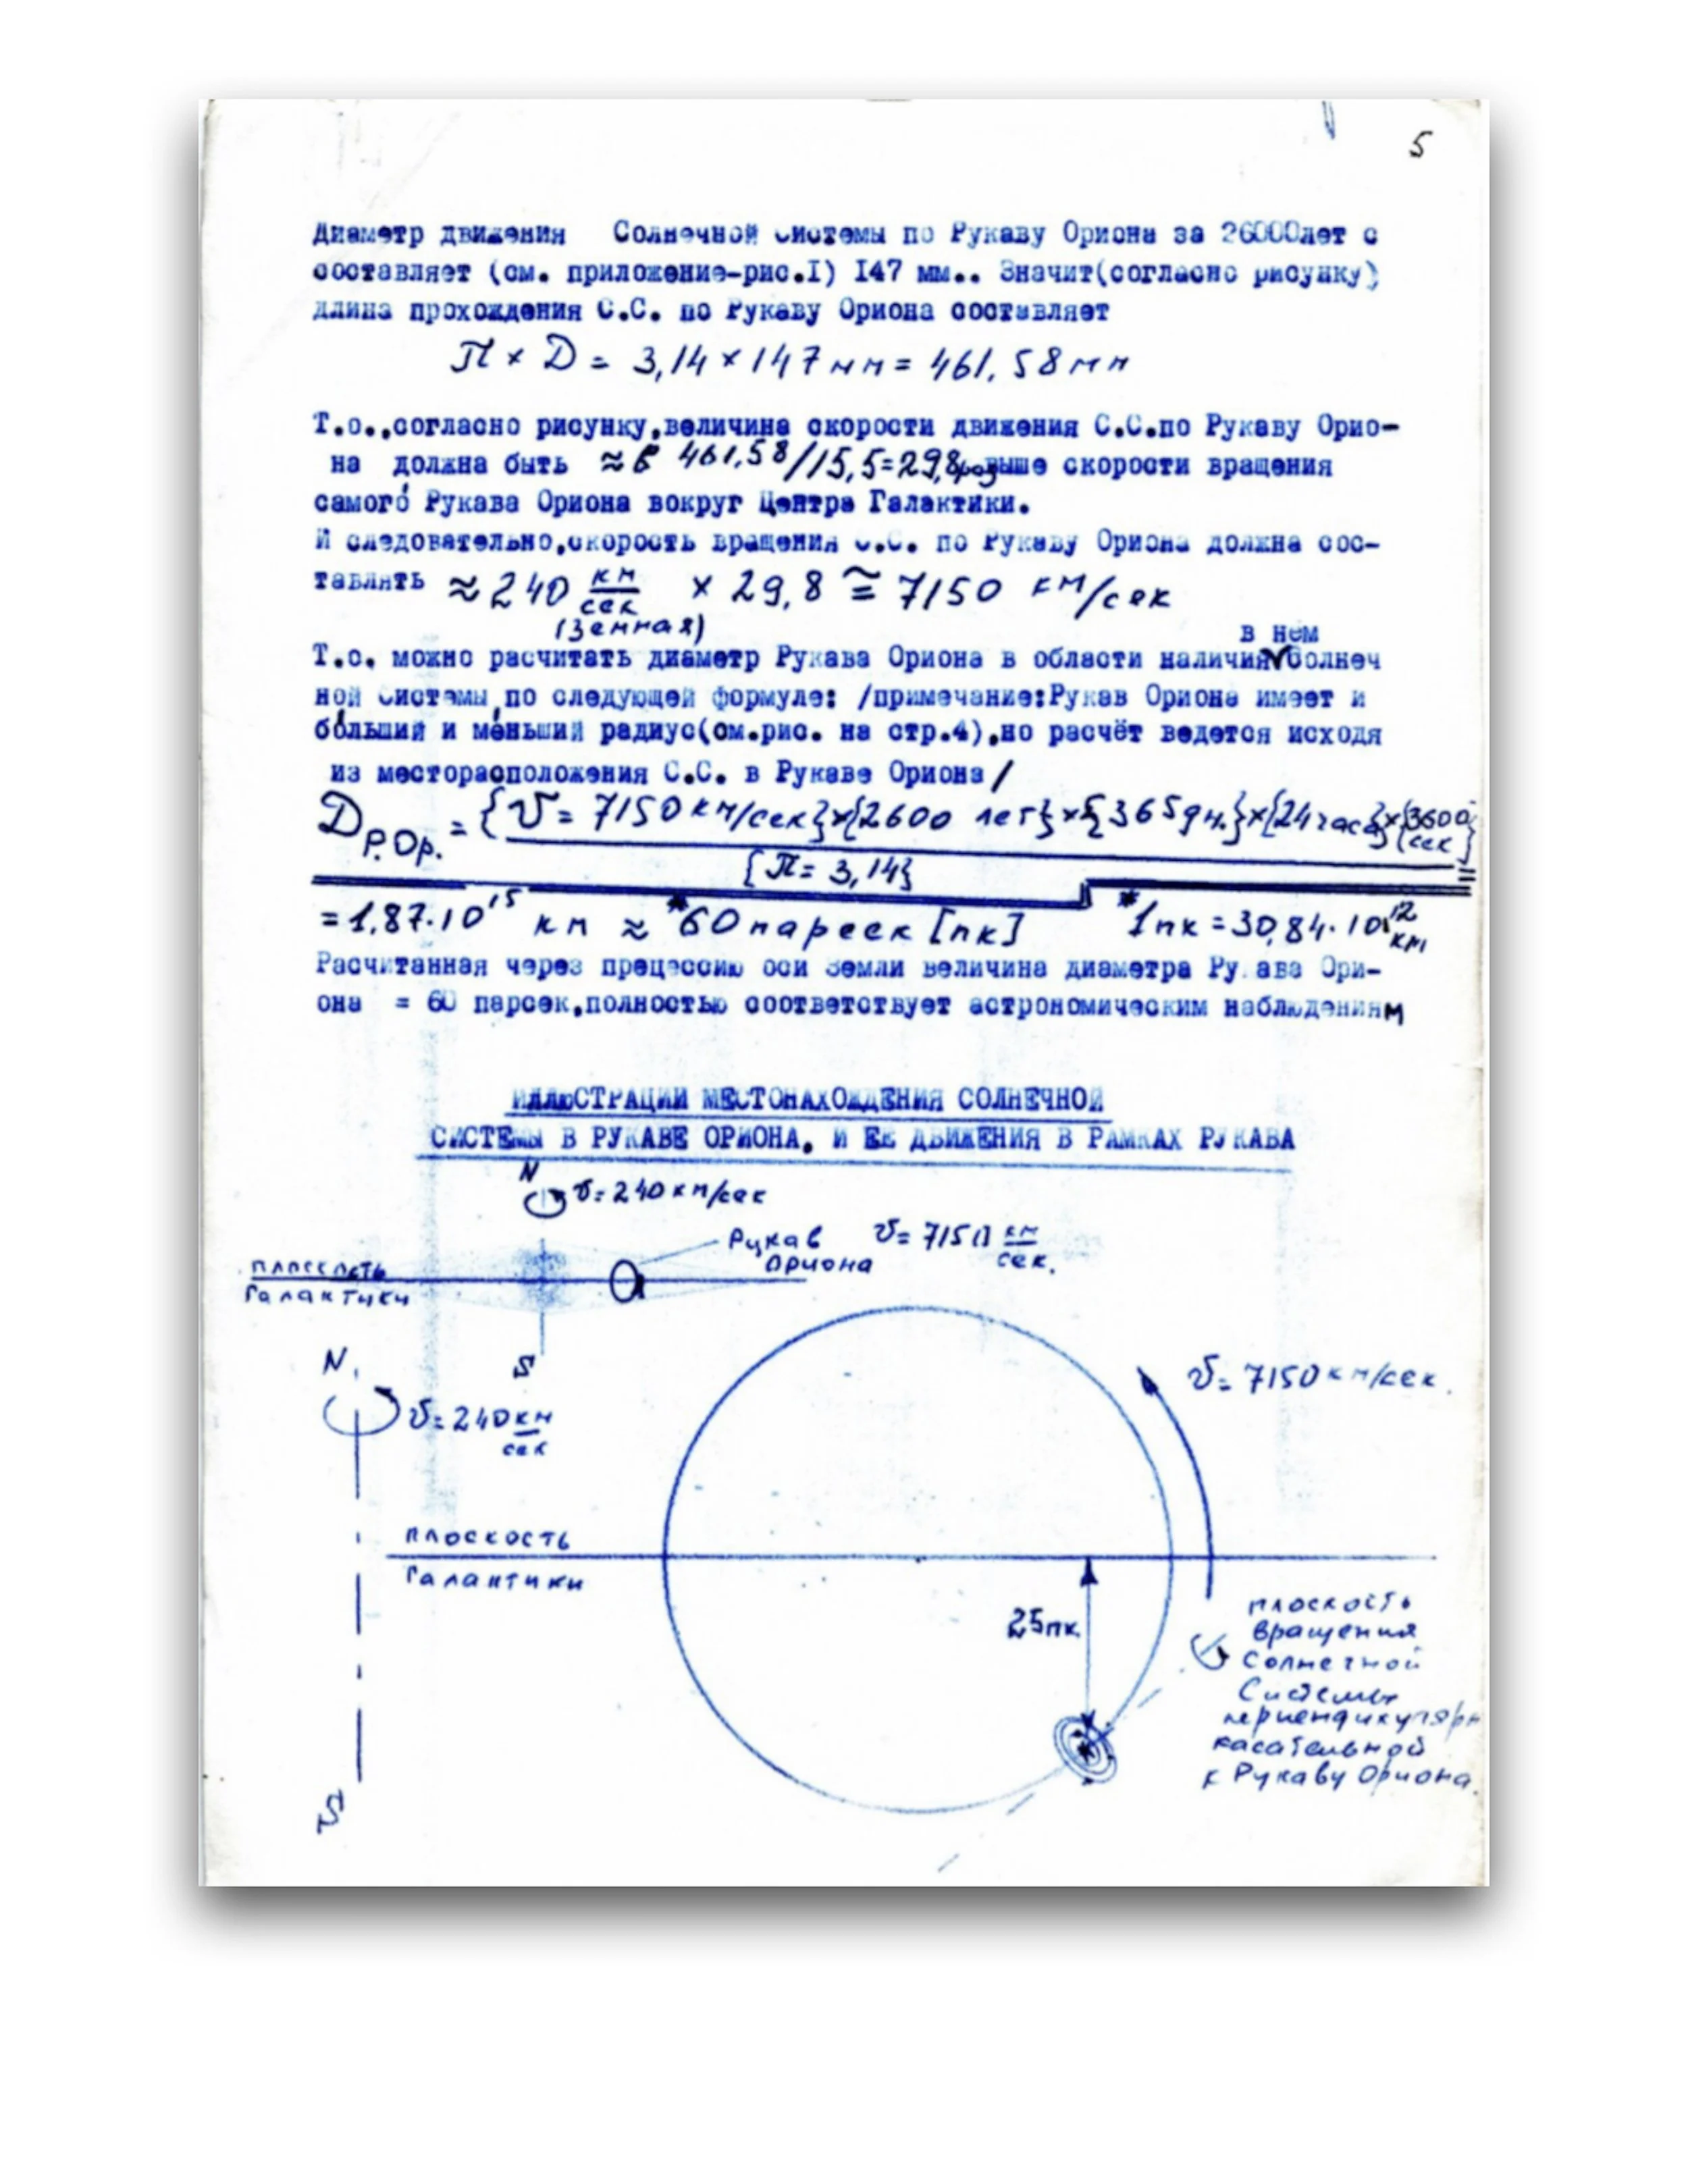 5
Диаметр движения Солнечной Системы по Рукаву Ориона за 26000лет с
составляет (см. приложение-рис.I) I47 мм.. Значит(согласно рисунку)
длина прохождения С.С. по Рукаву Ориона составляет
П × D = 3,14 × 147 мм = 461,58 мм
Т.о.,согласно рисунку,величина скорости движения С.С.по Рукаву Орио-
на должна быть ≈ в 461,58/15,5=29,8 раз выше скорости вращения
самого Рукава Ориона вокруг Центра Галактики.
И следовательно,скорость вращения С.С. по Рукаву Ориона должна сос-
тавлять ≈ 240 км/сек × 29,8 ≅ 7150 км/сек
(Земная)
в нем
Т.о. можно расчитать диаметр Рукава Ориона в области наличия Солнеч
ной Системы по следующей формуле: /примечание:Рукав Ориона имеет и
больший и меньший радиус(см.рис. на стр.4),но расчёт ведется исходя
из месторасположения С.С. в Рукаве Ориона/
D Р.Ор. = {υ = 7150 км/сек}×{2600 лет}×{365 дн.}×{24 часа}×{3600 сек}
{π = 3,14}
= 1,87·10¹⁵ км ≈ *60 парсек [пк] *1пк = 30,84·10¹² км
Расчитанная через прецессию оси Земли величина диаметра Рукава Ори-
она = 60 парсек,полностью соответствует астрономическим наблюдениям
ИЛЛЮСТРАЦИИ МЕСТОНАХОЖДЕНИЯ СОЛНЕЧНОЙ
СИСТЕМЫ В РУКАВЕ ОРИОНА, И ЕЕ ДВИЖЕНИЯ В РАМКАХ РУКАВА
N
υ = 240 км/сек
Рукав Ориона
υ = 7150 км/сек.
плоскость
Галактики
S
N
υ = 240 км/сек
υ = 7150 км/сек.
плоскость
Галактики
25пк
плоскость
вращения
Солнечной
Системы
перпендикулярн
касательной
к Рукаву Ориона.
S